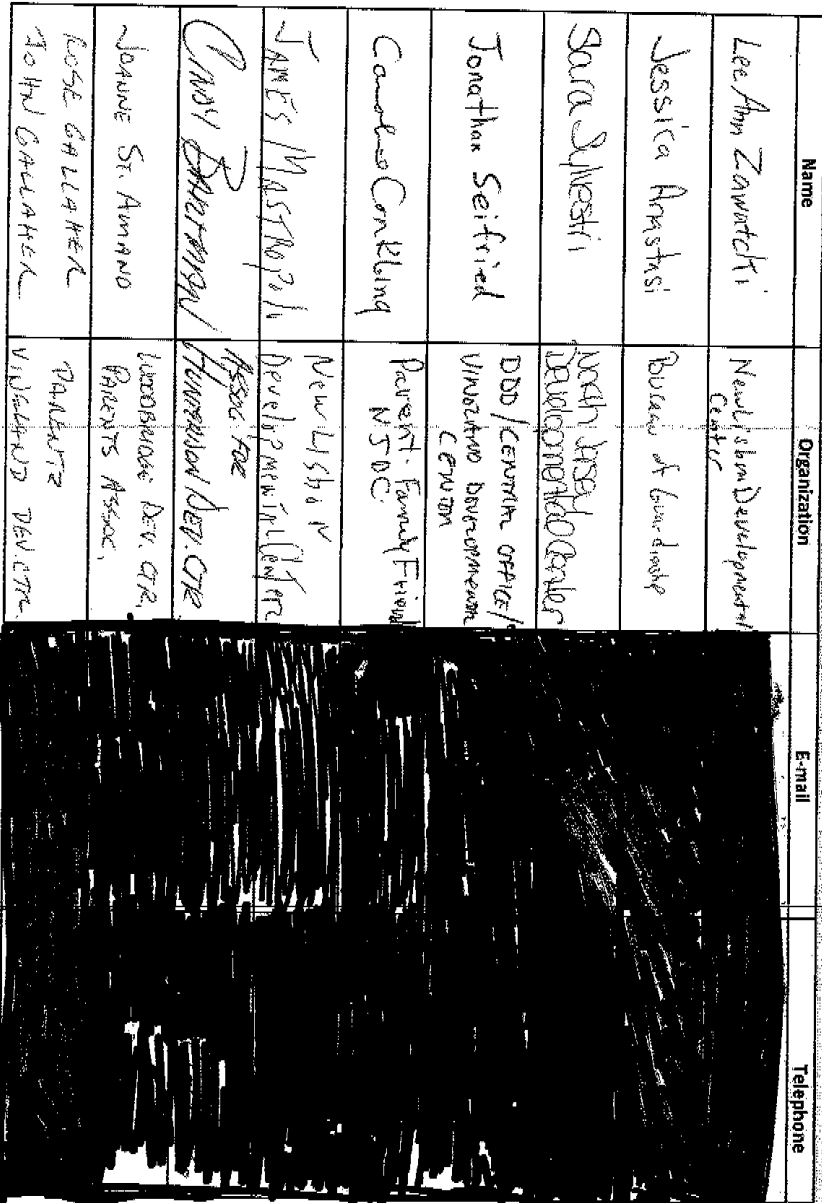 Name Organization E-mail Telephone
Lee Ann Zawatcki New Lisbon Developmental
Center
Jessica Anastasi Bureau of Guardianship
Sara Sylvestri North Jersey
Developmental Center
Jonathan Seifried DDD/CENTRAL OFFICE/
VINELAND DEVELOPMENTAL
CENTER
Conkling Parent-Family Friend
NJDC
JAMES MASTROPOLI New Lisbon
Developmental Center
CINDY BARTMAN ASSOC FOR
HUNTERDON DEV. CTR
JOANNE ST. AMAND WOODBRIDGE DEV. CTR.
PARENTS ASSOC.
ROSE GALLAHER PARENTS
JOHN GALLAHER VINELAND DEV. CTR.